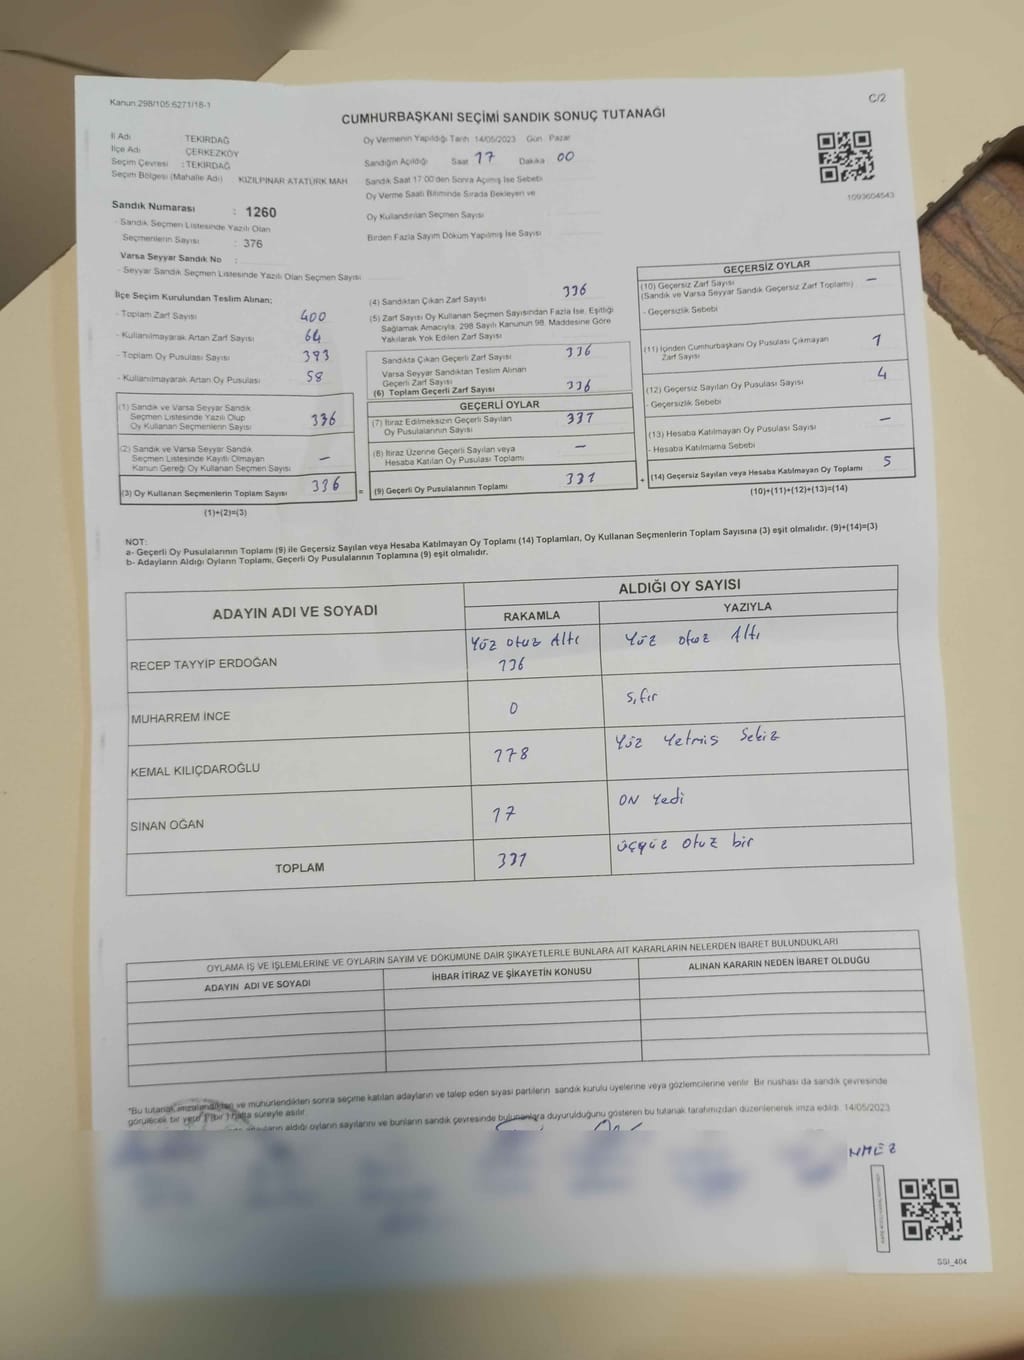 Kanun.298/105;6271/18-1
C/2
CUMHURBAŞKANI SEÇİMİ SANDIK SONUÇ TUTANAĞI
İl Adı TEKİRDAĞ
İlçe Adı ÇERKEZKÖY
Seçim Çevresi : TEKİRDAĞ
Seçim Bölgesi (Mahalle Adı) : KIZILPINAR ATATÜRK MAH
Oy Vermenin Yapıldığı Tarih 14/05/2023 Gün Pazar
Sandığın Açıldığı Saat 17 Dakika 00
Sandık Saat 17:00'den Sonra Açılmış İse Sebebi
Oy Verme Saati Bitiminde Sırada Bekleyen ve
Oy Kullandırılan Seçmen Sayısı
Birden Fazla Sayım Döküm Yapılmış İse Sayısı
1093604543
Sandık Numarası : 1260
- Sandık Seçmen Listesinde Yazılı Olan
Seçmenlerin Sayısı : 376
Varsa Seyyar Sandık No :
- Seyyar Sandık Seçmen Listesinde Yazılı Olan Seçmen Sayısı
İlçe Seçim Kurulundan Teslim Alınan;
- Toplam Zarf Sayısı 400
- Kullanılmayarak Artan Zarf Sayısı 64
- Toplam Oy Pusulası Sayısı 393
- Kullanılmayarak Artan Oy Pusulası 58
(1) Sandık ve Varsa Seyyar Sandık
Seçmen Listesinde Yazılı Olup
Oy Kullanan Seçmenlerin Sayısı 336
(2) Sandık ve Varsa Seyyar Sandık
Seçmen Listesinde Kayıtlı Olmayan
Kanun Gereği Oy Kullanan Seçmen Sayısı –
(3) Oy Kullanan Seçmenlerin Toplam Sayısı 336
(1)+(2)=(3)
(4) Sandıktan Çıkan Zarf Sayısı 336
(5) Zarf Sayısı Oy Kullanan Seçmen Sayısından Fazla İse, Eşitliği
Sağlamak Amacıyla, 298 Sayılı Kanunun 98. Maddesine Göre
Yakılarak Yok Edilen Zarf Sayısı
Sandıkta Çıkan Geçerli Zarf Sayısı 336
Varsa Seyyar Sandıktan Teslim Alınan
Geçerli Zarf Sayısı
(6) Toplam Geçerli Zarf Sayısı 336
GEÇERLİ OYLAR
(7) İtiraz Edilmeksizin Geçerli Sayılan
Oy Pusulalarının Sayısı 331
(8) İtiraz Üzerine Geçerli Sayılan veya
Hesaba Katılan Oy Pusulası Toplamı –
= (9) Geçerli Oy Pusulalarının Toplamı 331
GEÇERSİZ OYLAR
(10) Geçersiz Zarf Sayısı –
(Sandık ve Varsa Seyyar Sandık Geçersiz Zarf Toplamı)
- Geçersizlik Sebebi
(11) İçinden Cumhurbaşkanı Oy Pusulası Çıkmayan
Zarf Sayısı 1
(12) Geçersiz Sayılan Oy Pusulası Sayısı 4
- Geçersizlik Sebebi
(13) Hesaba Katılmayan Oy Pusulası Sayısı –
- Hesaba Katılmama Sebebi
+ (14) Geçersiz Sayılan veya Hesaba Katılmayan Oy Toplamı 5
(10)+(11)+(12)+(13)=(14)
NOT:
a- Geçerli Oy Pusulalarının Toplamı (9) ile Geçersiz Sayılan veya Hesaba Katılmayan Oy Toplamı (14) Toplamları, Oy Kullanan Seçmenlerin Toplam Sayısına (3) eşit olmalıdır. (9)+(14)=(3)
b- Adayların Aldığı Oyların Toplamı, Geçerli Oy Pusulalarının Toplamına (9) eşit olmalıdır.
ADAYIN ADI VE SOYADI
ALDIĞI OY SAYISI
RAKAMLA YAZIYLA
RECEP TAYYİP ERDOĞAN Yüz otuz Altı 136 Yüz otuz Altı
MUHARREM İNCE 0 Sıfır
KEMAL KILIÇDAROĞLU 178 Yüz Yetmiş Sekiz
SİNAN OĞAN 17 ON Yedi
TOPLAM 331 üçyüz otuz bir
OYLAMA İŞ VE İŞLEMLERİNE VE OYLARIN SAYIM VE DÖKÜMÜNE DAİR ŞİKAYETLERLE BUNLARA AİT KARARLARIN NELERDEN İBARET BULUNDUKLARI
ADAYIN ADI VE SOYADI İHBAR İTİRAZ VE ŞİKAYETİN KONUSU ALINAN KARARIN NEDEN İBARET OLDUĞU
*Bu tutanak imzalandıktan ve mühürlendikten sonra seçime katılan adayların ve talep eden siyasi partilerin sandık kurulu üyelerine veya gözlemcilerine verilir. Bir nüshası da sandık çevresinde
görülecek bir yere 1 (bir) hafta süreyle asılır.
adayların aldığı oyların sayılarını ve bunların sandık çevresinde bulunanlara duyurulduğunu gösteren bu tutanak tarafımızdan düzenlenerek imza edildi. 14/05/2023
NMEZ
SSI_404